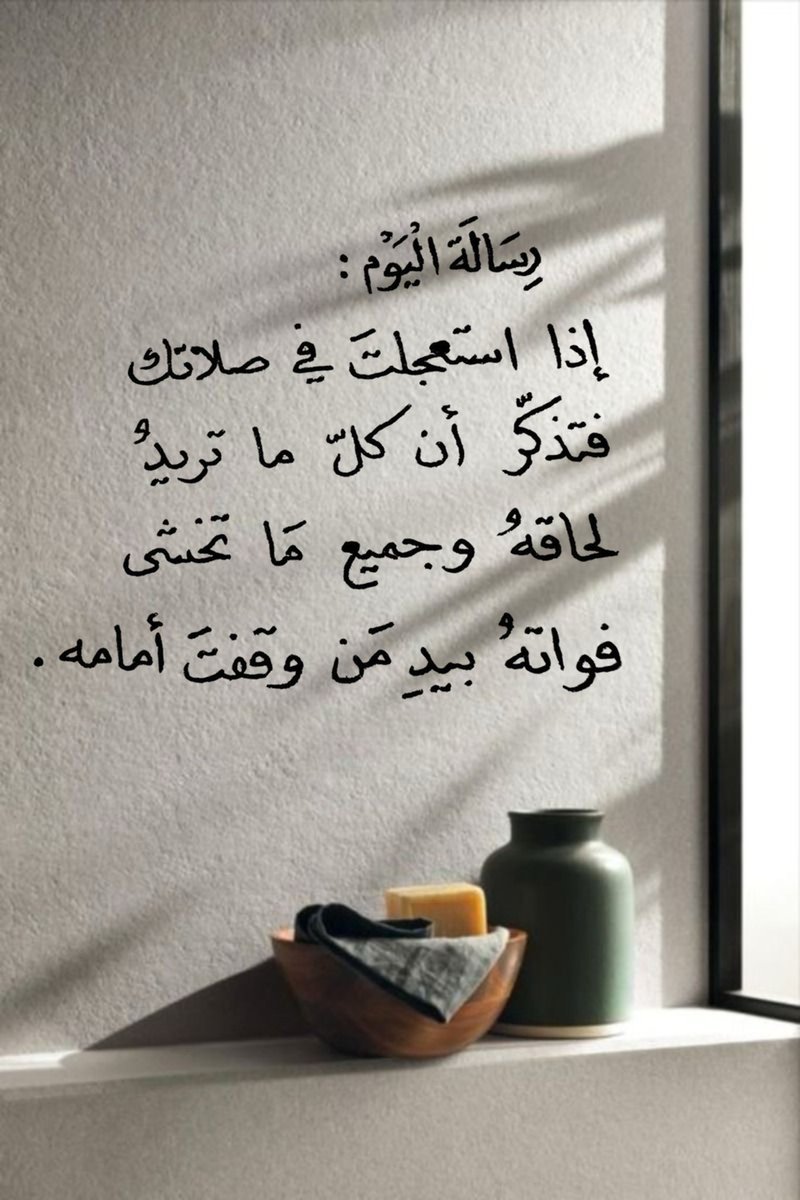 رِسَالَة الْيَوْم :
إذا استعجلتَ في صلاتك
فتذكّر أن كلّ ما تريدُ
لحاقهُ وجميع مَا تخشى
فواتهُ بيدِ مَن وقفتَ أمامه .